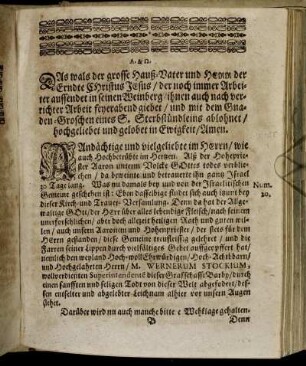 A. & Ω.
DAs wals der grosse Hauß-Vater und HErr der
Erndte Christus Jesus / der noch immer Arbei-
ter aussendet in seinen Weinberg / ihnen auch nach ver-
richter Arbeit Feyerabend giebet / und mit dem Gna-
den-Groschen eines S. Sterbstündleins ablohnet /
hochgeliebet und gelobet in Ewigkeit / Amen.
Andächtige und vielgeliebte im Herrn / wie
auch Hochbetrübte im Hertzen. Als der Hoheprie-
ster Aaron unterm Volcke Gottes todes verbli-
chen / da beweinte und betrauerte ihn gantz Israel
30 Tage lang. Was nu damals bey und von der Israelitischen
Gemeine geschehen ist: Eben dasselbige findet sich auch jauet bey
dieser Kirch- und Trauer-Versamlung. Denn da hat der All-
gewaltige Gott / der Herr über alles lebendige Fleisch / nach seinem
unerforschlichen / aber doch allzeit heiligen Rath und guten wil-
len / auch unsern Aaronim und Hohenpriester / der stets für dem
Herrn gestanden / diese Gemeine treufleissig gelehret / und die
Farren seiner Lippen durch vielfältiges Gebet auffgeopffert hat /
nemlich den weyland Hoch-wollEhrwürdigen / Hoch-Achtbarn /
und Hochgelahrten Herrn / M. WERNERUM STOCKIUM,
wolverdienten Superintendenten dieser Graffschafft Barby / durch
einen sanfften und seligen Todt von dieser Welt abgefodert / des-
sen entselter und abgelebter Leichnam alhier vor unsern Augen
stehet.
Darüber wird nu auch manche bittere Wehklage gehalten.
Num.
20.
B
Denn